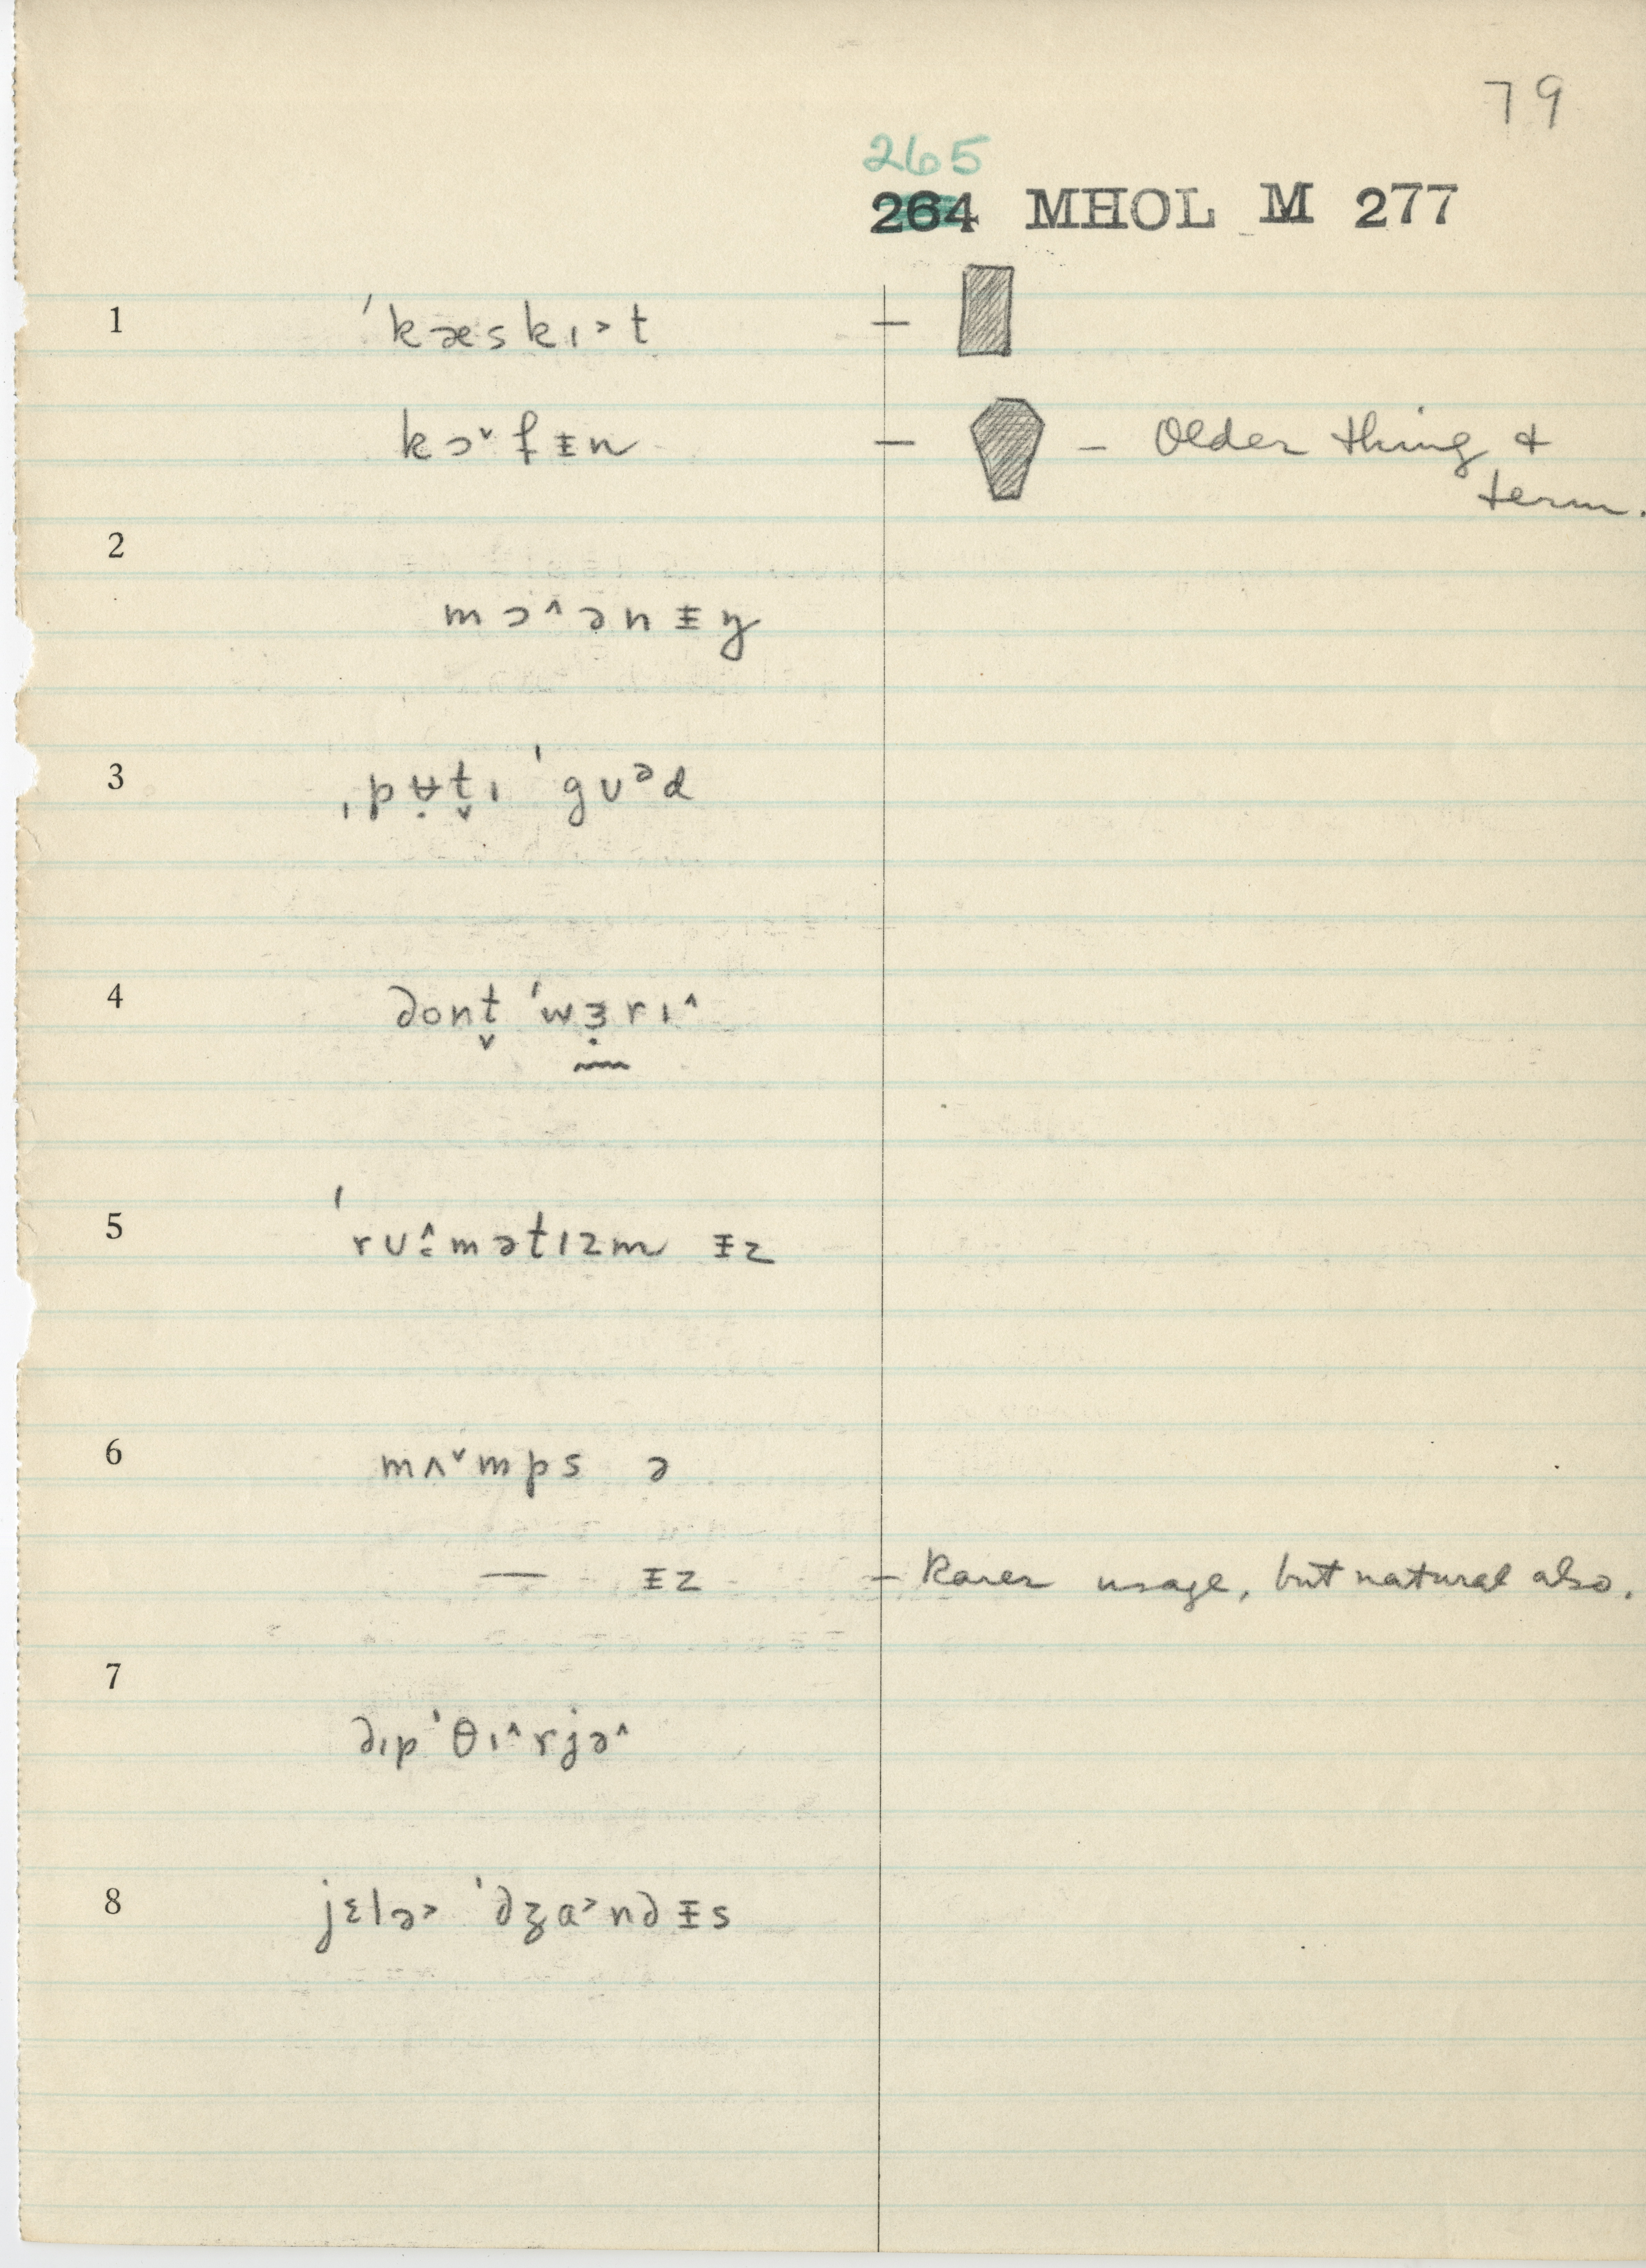 79
265
264 MHOL M 277
1 ˈkæskɪ˃t –
kɔ˅fᵻn – – Older thing &
term.
2
mɔ˄ənᵻŋ
3 ˌpʉ̣t̬ɪ ˈgʊᵊd
4 dont̬ ˈwɜ̣rɪ˄
5 ˈrʊ˄:mətɪzm ᵻz
6 mʌ˅mps ə
— ᵻz – Rarer usage, but natural also.
7
dɪpˈθɪ˄rjə˄
8 jɛlə˃ ˈdʒa˃ndᵻs